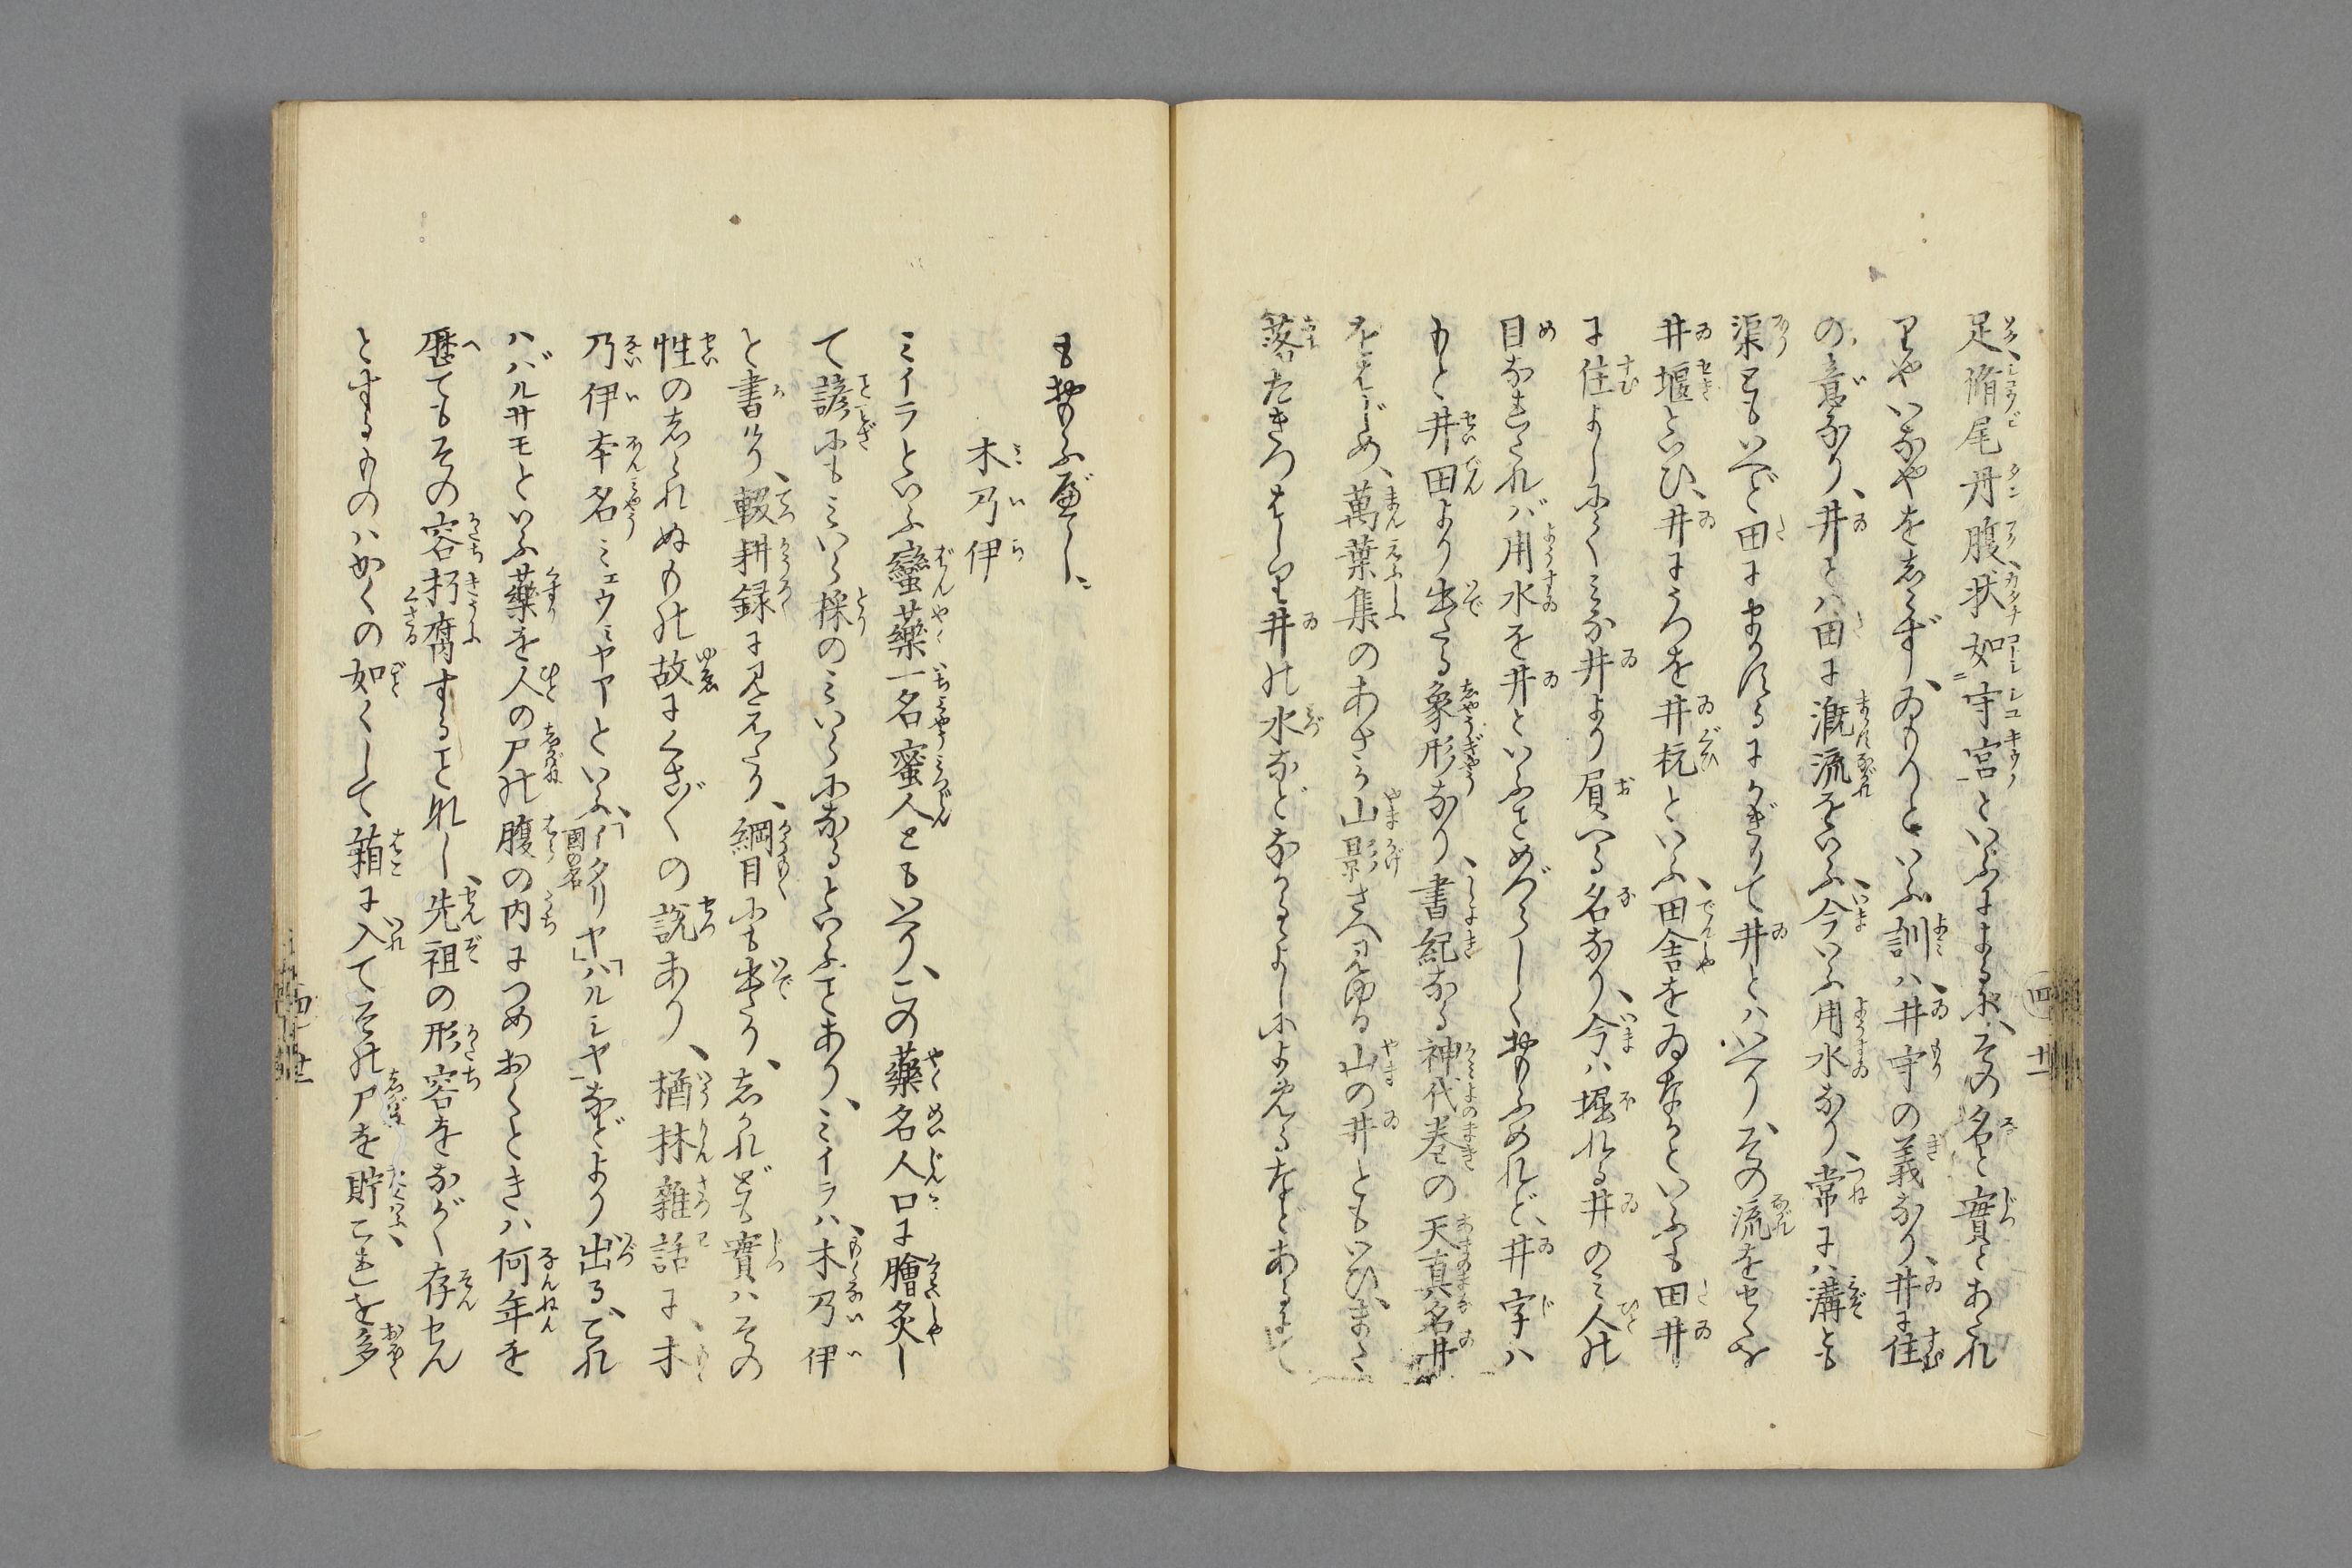 足脩尾丹腹状如守宮といふによるに、その名と實とあたれ
りやいなやをしらず、ゐもりといふ訓ハ井守の義なり、井に住
の意なり、井とハ田に漑流をいふ、今いふ用水なり、常にハ溝とも
渠ともいへど田にまかするにかぎりて井とハいへり、その流をせくを
井堰といひ、井にうつを井杭といふ、田舎をゐなかといふも田井
に住よしにてミな井より屓へる名なり、今ハ堀れる井のミ人の
目なれたれバ用水を井といふをめづらしく思ふめれど、井字ハ
もと井田より出たる象形なり、書紀なる神代巻の天真名井
をはじめ、萬葉集のあさか山影さへ見ゆる山の井ともいひ、また
落たきつはしり井の水などながるゝよしによめるなどあるにて
も思ふべし、
木乃伊
ミイラといふ蠻藥一名蜜人ともいへり、この藥名人口に膾炙し
て諺にもミいら採のミいらになるといふことあり、ミイラハ、木乃伊
と書けり、輟耕録に見えたり、綱目にも出たり、しかれども實ハその
性のしられぬもの故にくさ〴〵の説あり、楢林雜話に、木
乃伊本名ミエウミヤヤーといふ、「イタリヤ」「ハルシヤ」などより出る、これ
國の名
ハバルサモといふ藥を人の尸の腹の内につめおくときハ何年を
歴てもその容朽腐することなし、先祖の形容をながく存せん
とするものハかくの如くして箱に入てその尸を貯こ。これを多
四 十一